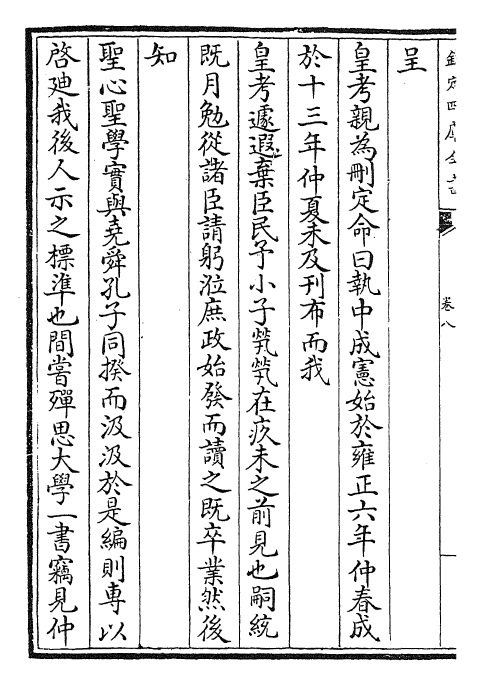 欽定四庫全書
卷八
呈
皇考親為刪定命曰執中成憲始於雍正六年仲春成
於十三年仲夏未及刊布而我
皇考遽遐棄臣民予小子煢煢在疚未之前見也嗣統
既月勉從諸臣請躬涖庶政始發而讀之既卒業然後
知
聖心聖學實與堯舜孔子同揆而汲汲於是編則專以
啓廸我後人示之標準也間嘗殫思大學一書竊見仲